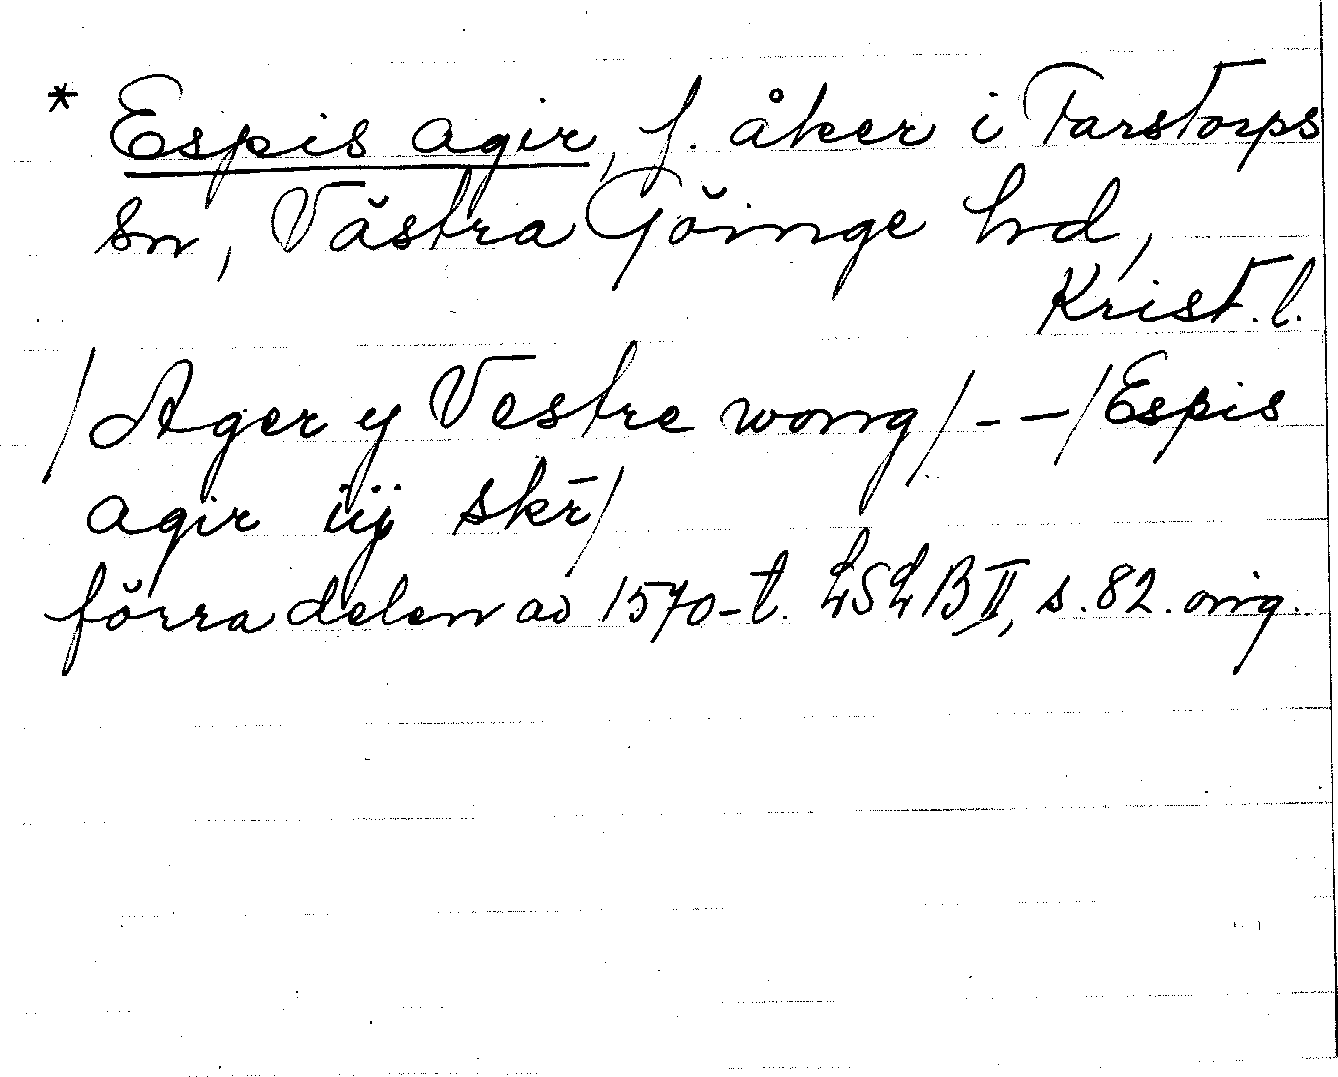 * Espis agir, f. åker i Farstorps
sn, Västra Göinge hd,
Krist. l.
/Ager y Vestre wong/ - - /Espis
agir iij skr̄/
förra delen av 1570-t. LSLB II, s. 82. orig.